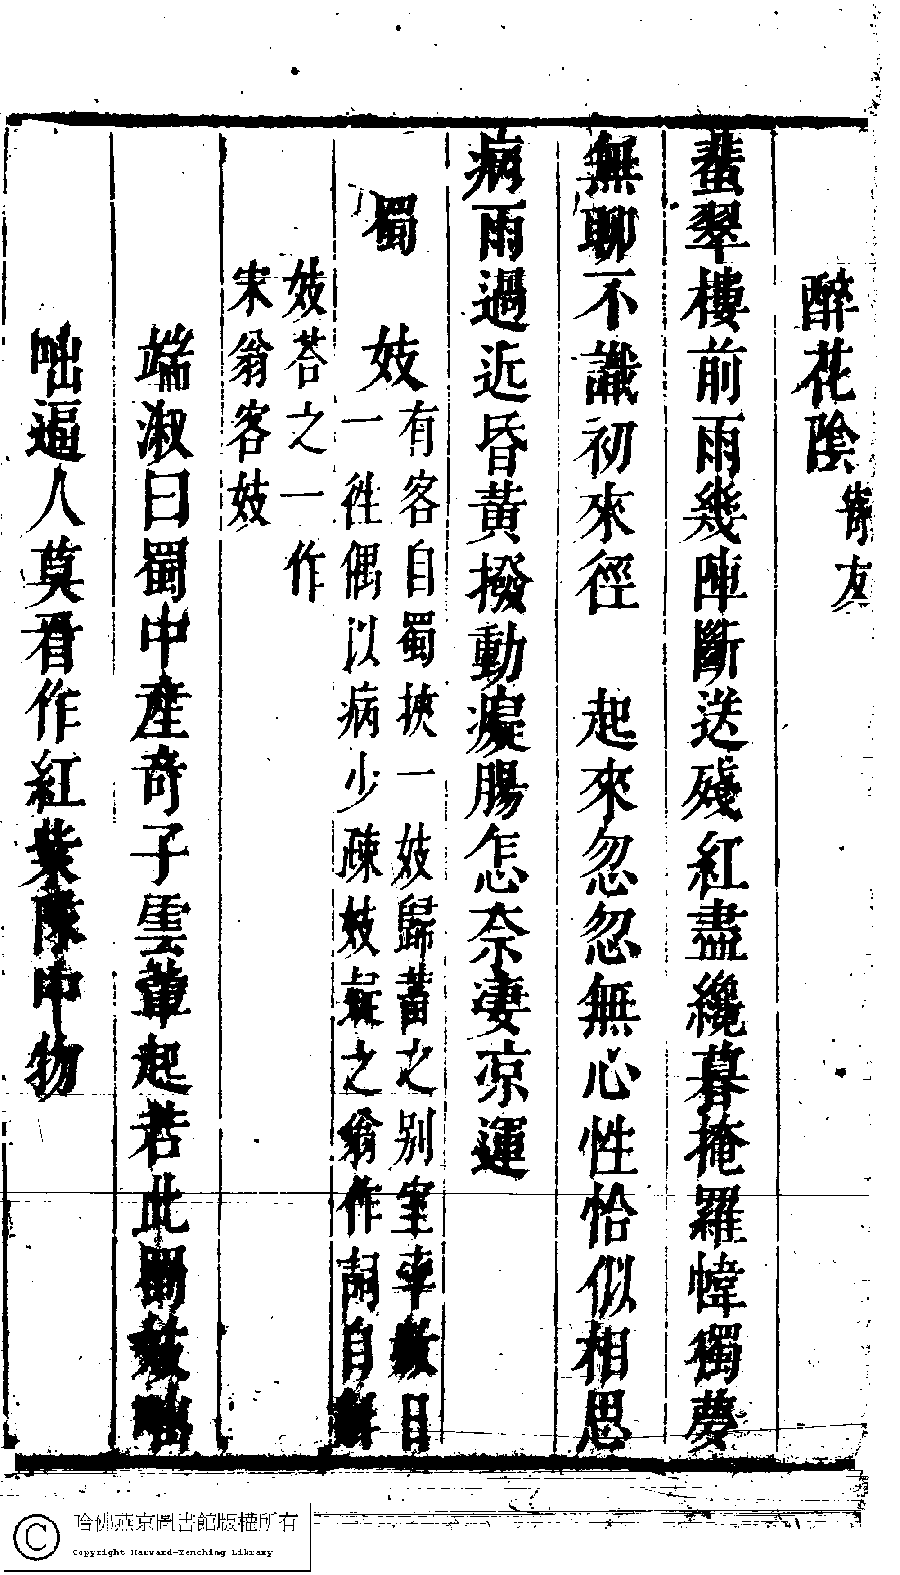 醉花陰 寄友
蜚翠樓前雨幾陣斷送殘紅盡纔暮掩羅幃獨夢
無聊不識初來徑　起來忽忽無心性恰似相思
病雨過近昏黃撥動癡腸怎奈凄凉運
蜀　妓
有客自蜀挾一妓歸蓄之别室率數日
一徃偶以病少疎妓疑之翁作詞自解
妓荅之一作
宋翁客妓
端淑曰蜀中產奇子雲輩起若此蜀妓咄
咄逼人莫看作紅葉隊中物
哈佛燕京圖書館版權所有
Copyright Harvard-Yenching Library